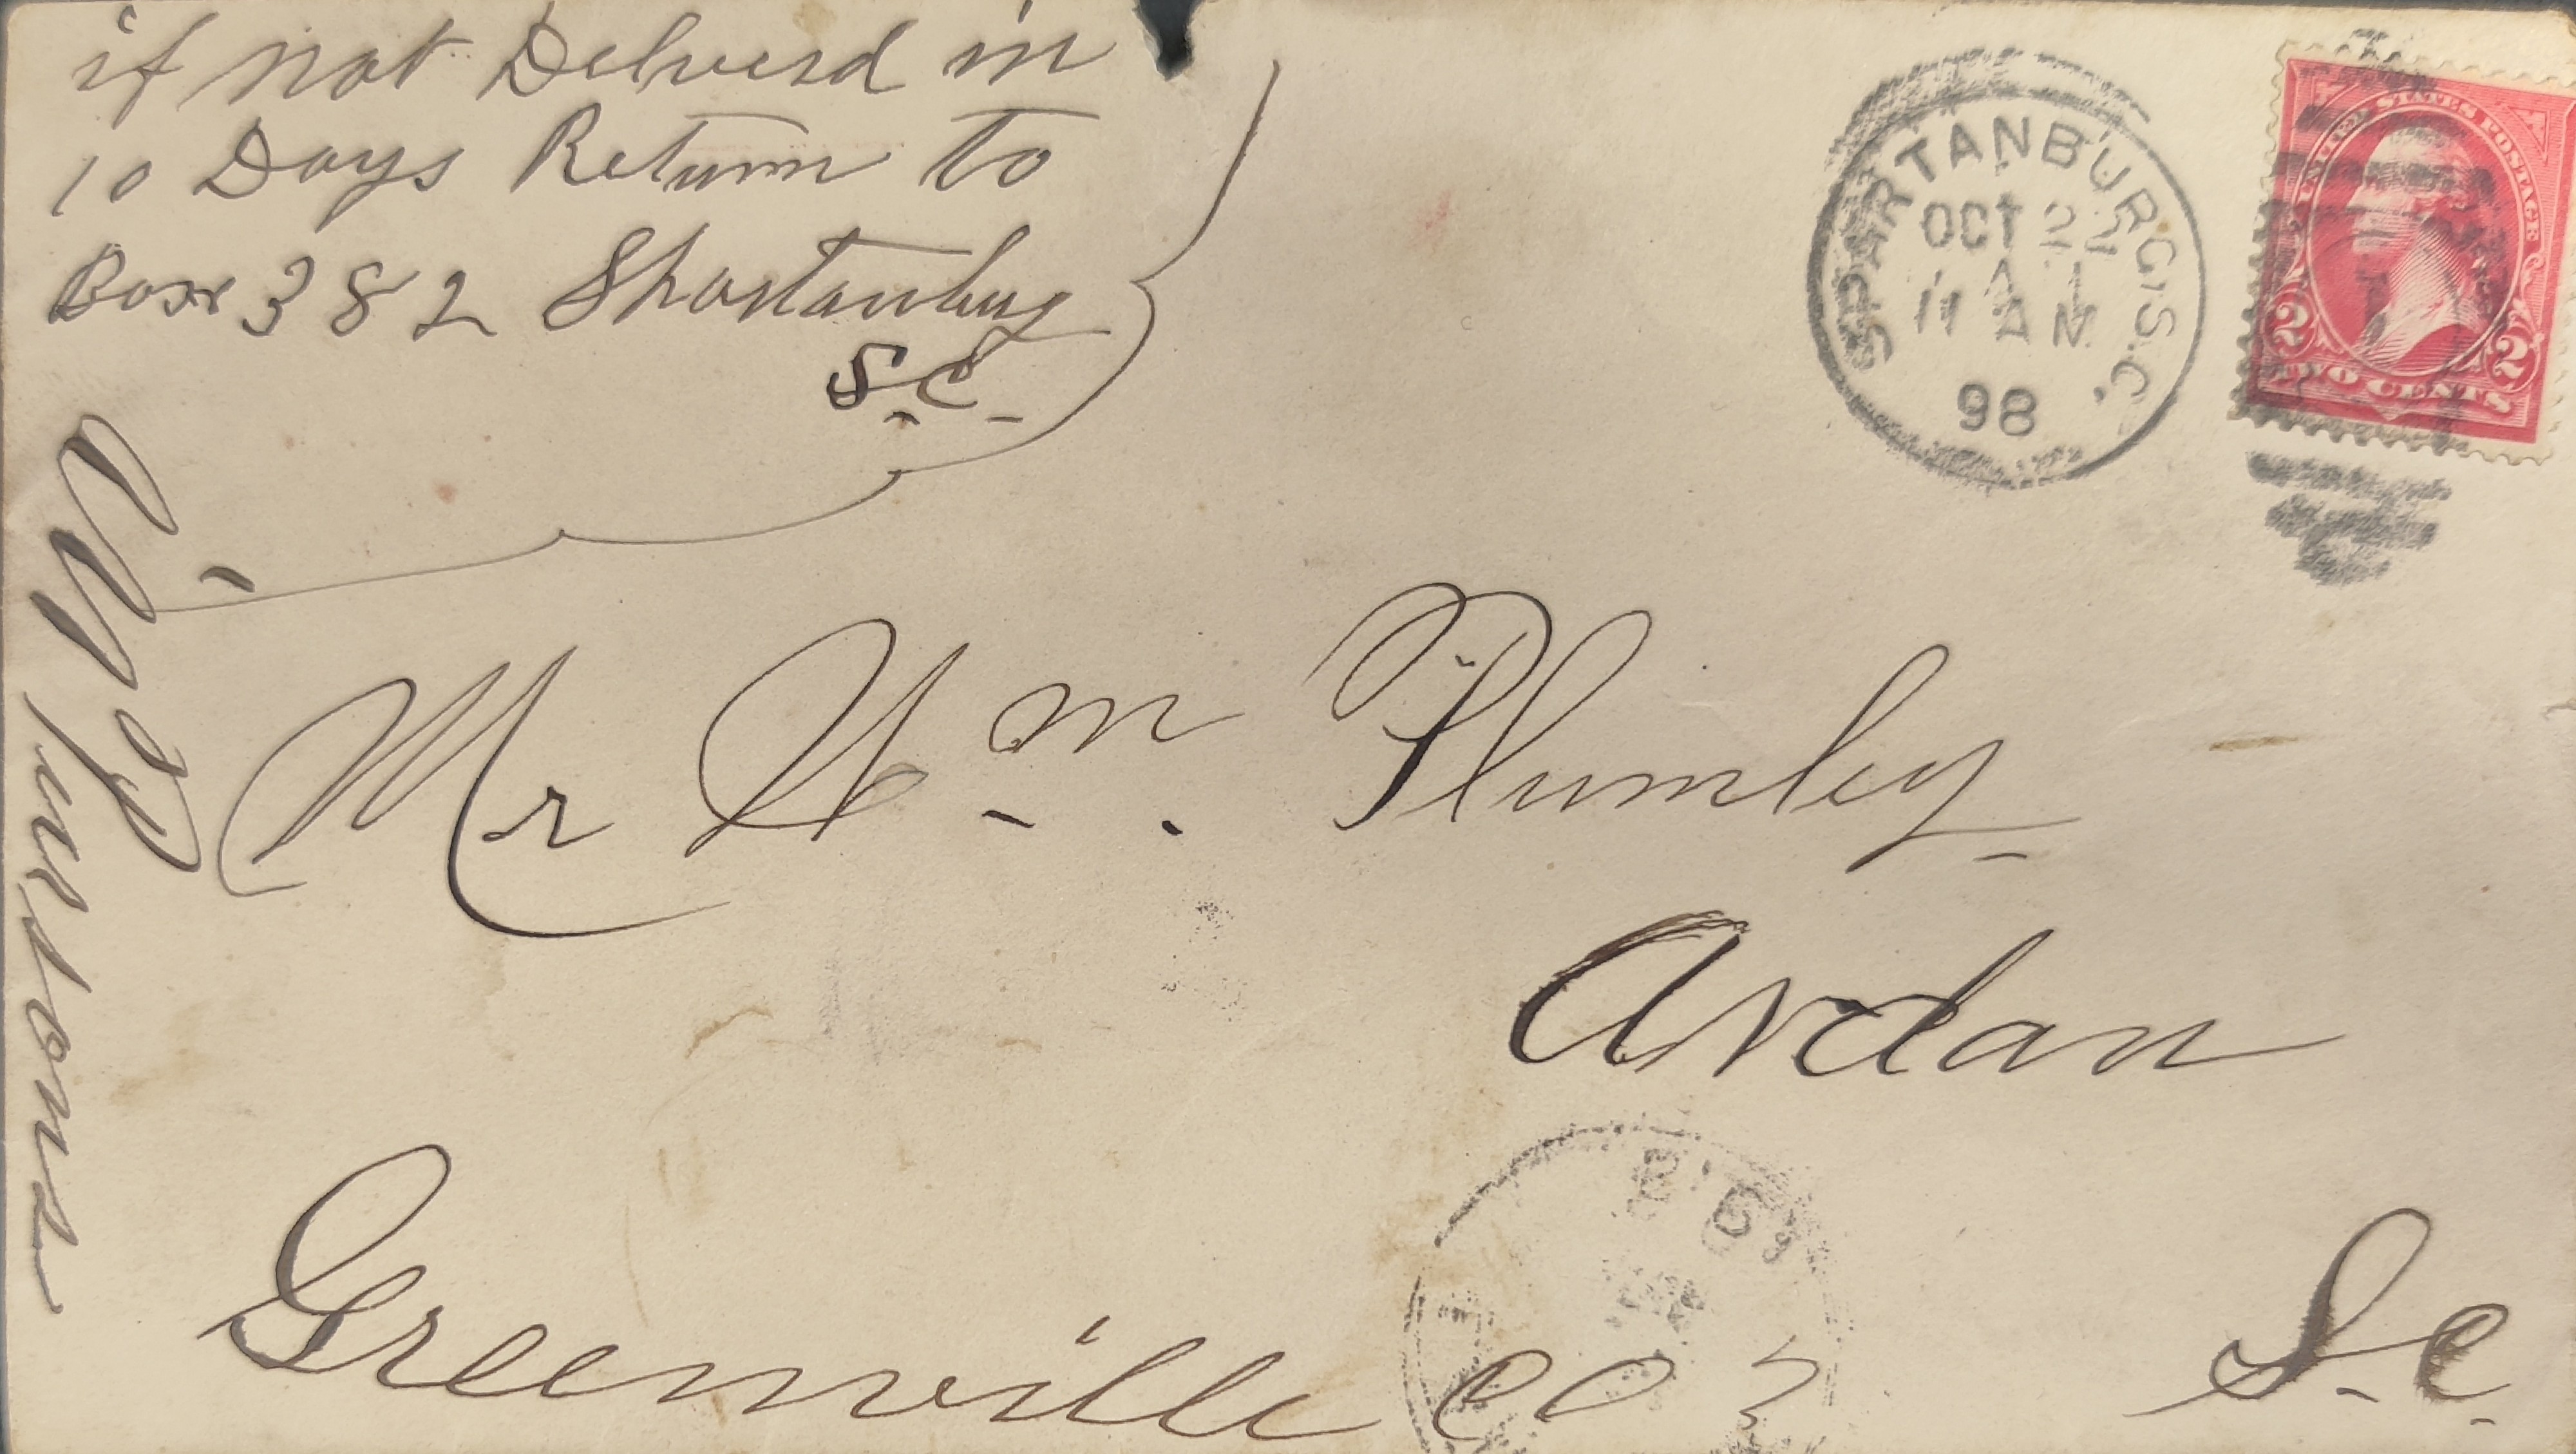 if not Deliverd in
10 Days Return to
Box 382 Sportanburg
S.C.
SPARTANBURG, S.C.
OCT 22
11 AM
98
UNITED STATES POSTAGE
2 2
TWO CENTS
Mr Wm. Plumley
Ardan
Greenville Co
S.C.